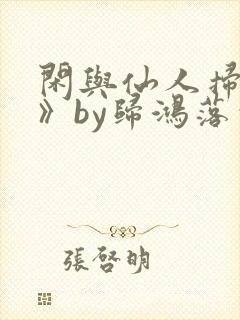 閑與仙人掃
》by歸鴻落
張啓明